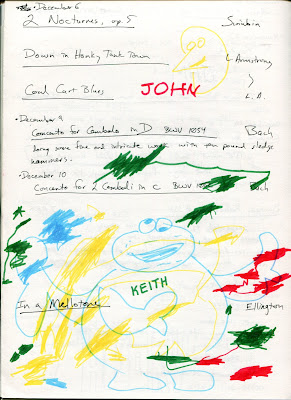 • December 6
2 Nocturnes, op. 5 Scriabin
Down in Honky Tonk Town L Armstrong
JOHN
Coal Cart Blues L.A.
• December 9
Concerto for Cembalo in D BWV 1054 Bach
Long some fine and intricate work with ten pound sledge
hammers.
• December 10
Concerto for 2 Cembali in c BWV Bach
KEITH
In a Mellotone Ellington